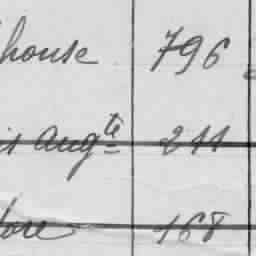 house 796
is augte 211
lore 168